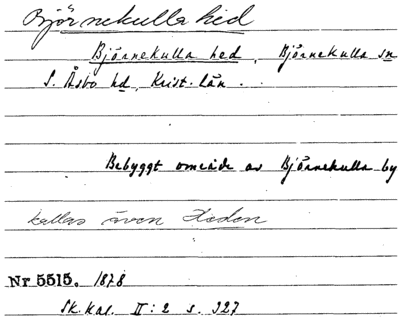 Björnekulla hed
Björnekulla hed, Björnekulla sn
S. Åsbo hd, Krist. län.
Bebyggt område av Björnekulla by
kallas även Heden
Nr 5515. 1878
Sk. Kal. II: 2 s. 327